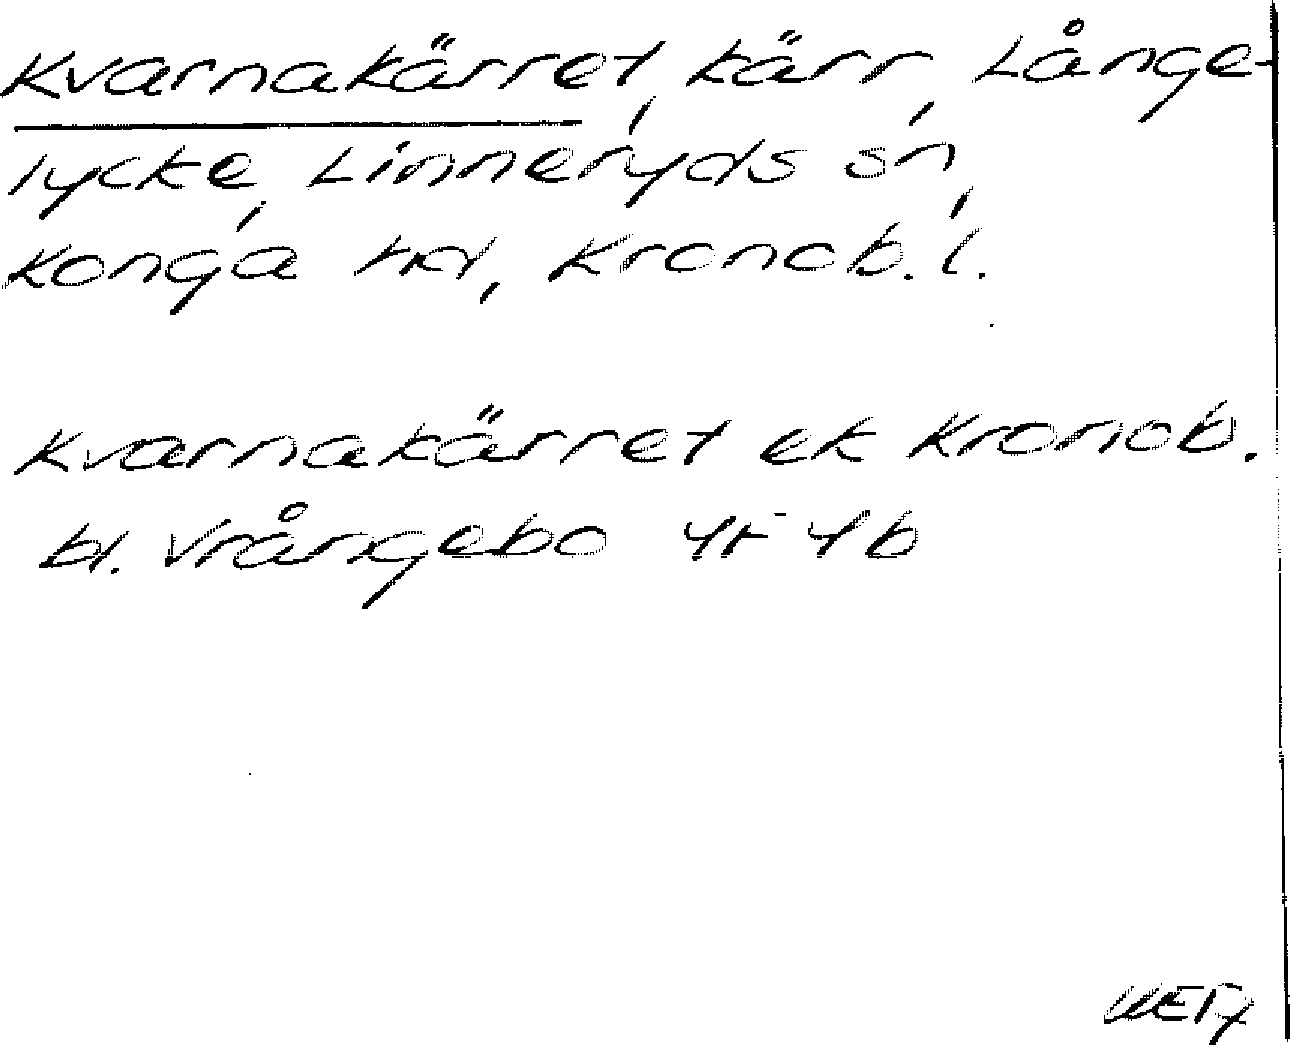 Kvarnakärret, kärr, Långe-
lycke, Linneryds sn,
Konga hd, Kronob. l.
Kvarnakärret ek Kronob.
bl. Vrångebo 4f 4b